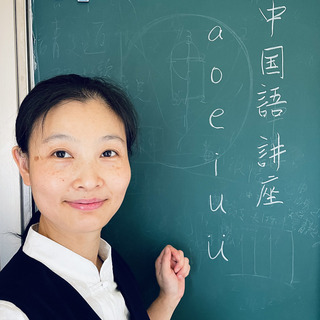 中国語講座
a o e i u ü